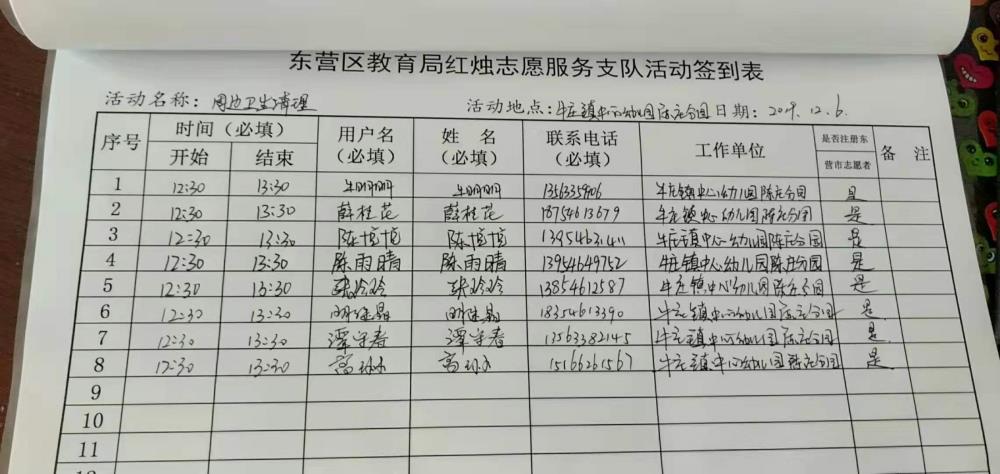 东营区教育局红烛志愿服务支队活动签到表
活动名称：周边卫生清理 活动地点：牛庄镇中心幼儿园陈庄分园 日期：2019.12.6.
序号 时间（必填） 用户名（必填） 姓名（必填） 联系电话（必填） 工作单位 是否注册东营市志愿者 备注
开始 结束
1 12:30 13:30 牛明明 牛明明 牛庄镇中心幼儿园陈庄分园 是
2 12:30 13:30 薛桂花 薛桂花 18754613679 牛庄镇中心幼儿园陈庄分园 是
3 12:30 13:30 陈 陈 13954631411 牛庄镇中心幼儿园陈庄分园 是
4 12:30 13:30 陈雨晴 陈雨晴 13954649752 牛庄镇中心幼儿园陈庄分园 是
5 12:30 13:30 张玲玲 张玲玲 13854612587 牛庄镇中心幼儿园陈庄分园 是
6 12:30 13:30 18354613390 牛庄镇中心幼儿园陈庄分园 是
7 12:30 13:30 谭守春 谭守春 13563382145 牛庄镇中心幼儿园陈庄分园 是
8 12:30 13:30 高 高 15166261567 牛庄镇中心幼儿园陈庄分园 是
9
10
11